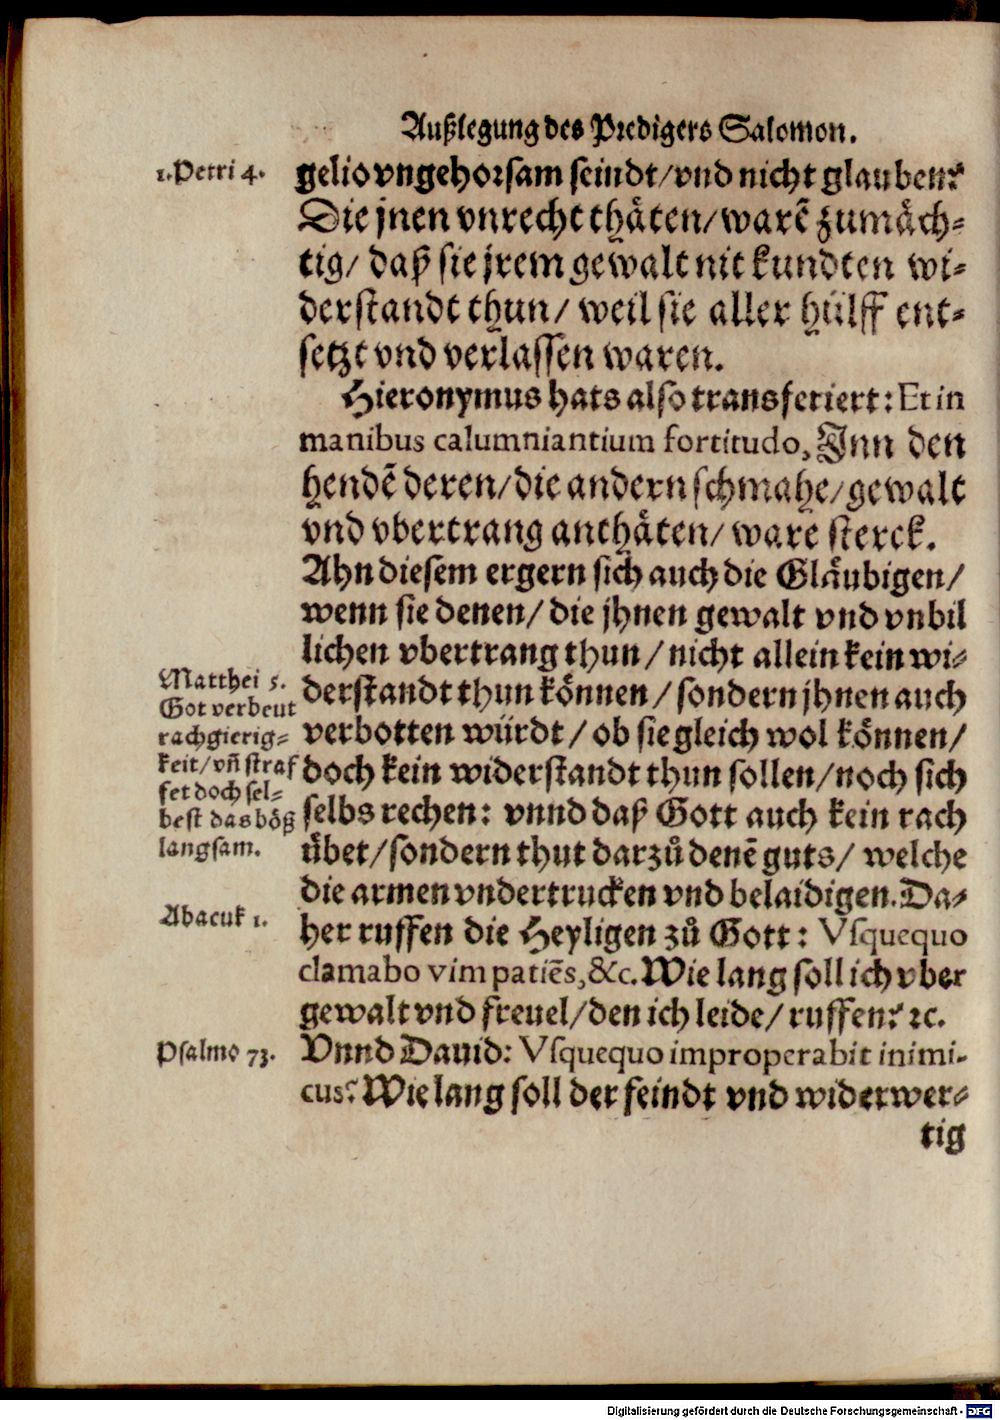 Außlegung des Predigers Salomon.
1. Petri 4.
gelio vngehorsam seindt/vnd nicht glauben?
Die jnen vnrecht thäten/warē zumäch-
tig/ daß sie jrem gewalt nit kundten wi-
derstandt thun/ weil sie aller hülff ent-
setzt vnd verlassen waren.
Hieronymus hats also transferiert: Et in
manibus calumniantium fortitudo, Inn den
hendē deren/die andern schmahe/gewalt
vnd vbertrang anthäten/ ware sterck.
Ahn diesem ergern sich auch die Gläubigen/
wenn sie denen/ die jhnen gewalt vnd vnbil
lichen vbertrang thun/ nicht allein kein wi-
derstandt thun können/ sondern jhnen auch
verbotten würdt/ ob sie gleich wol können/
doch kein widerstandt thun sollen/noch sich
selbs rechen: vnnd daß Gott auch kein rach
übet/sondern thut darzů denē guts/ welche
die armen vndertrucken vnd belaidigen. Da-
her ruffen die Heyligen zů Gott: Vsquequo
clamabo vim patiēs, &c. Wie lang soll ich vber
gewalt vnd freuel/den ich leide/ ruffen? ꝛc.
Vnnd Dauid: Vsquequo improperabit inimi-
cus? Wie lang soll der feindt vnd widerwer-
tig
Matthei 5.
Got verbeut
rachgierig-
keit/ vñ straf
fet doch sel-
best das böß
langsam.
Abacuk 1.
Psalmo 73.
Digitalisierung gefördert durch die Deutsche Forschungsgemeinschaft - DFG